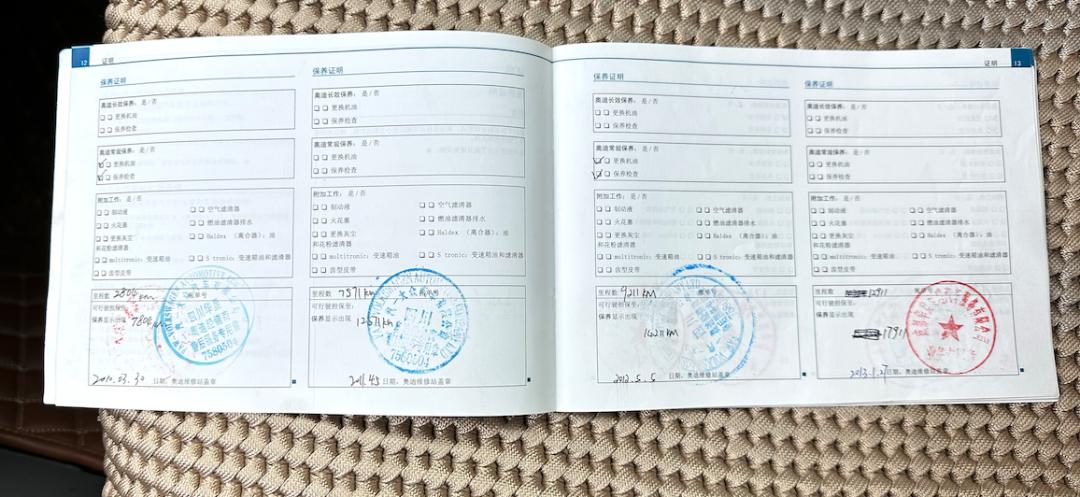 12 证明
保养证明
奥迪长效保养：是/否
更换机油
保养检查
奥迪常规保养：是/否
更换机油
保养检查
附加工作：是/否
制动液 空气滤清器
火花塞 燃油滤清器排水
更换灰尘 Haldex （离合器）：油
和花粉滤清器
multitronic：变速箱油 S tronic：变速箱油和滤清器
齿型皮带
里程数 帐单号
可行驶担保至：
保养显示出现 7804 km
7580504
2010.03.30 日期，奥迪维修站盖章
保养证明
奥迪长效保养：是/否
更换机油
保养检查
奥迪常规保养：是/否
更换机油
保养检查
附加工作：是/否
制动液 空气滤清器
火花塞 燃油滤清器排水
更换灰尘 Haldex （离合器）：油
和花粉滤清器
multitronic：变速箱油 S tronic：变速箱油和滤清器
齿型皮带
里程数 7571km 帐单号
可行驶担保至：
保养显示出现 12571km
四川
日期，奥迪维修站盖章
证明 13
保养证明
奥迪长效保养：是/否
更换机油
保养检查
奥迪常规保养：是/否
更换机油
保养检查
附加工作：是/否
制动液 空气滤清器
火花塞 燃油滤清器排水
更换灰尘 Haldex （离合器）：油
和花粉滤清器
multitronic：变速箱油 S tronic：变速箱油和滤清器
齿型皮带
里程数 9211 KM 帐单号
可行驶担保至：
保养显示出现 14211 KM
2012.5.5 日期，奥迪维修站盖章
保养证明
奥迪长效保养：是/否
更换机油
保养检查
奥迪常规保养：是/否
更换机油
保养检查
附加工作：是/否
制动液 空气滤清器
火花塞 燃油滤清器排水
更换灰尘 Haldex （离合器）：油
和花粉滤清器
multitronic：变速箱油 S tronic：变速箱油和滤清器
齿型皮带
里程数 12911
可行驶担保至：
保养显示出现 17911
日期，奥迪维修站盖章